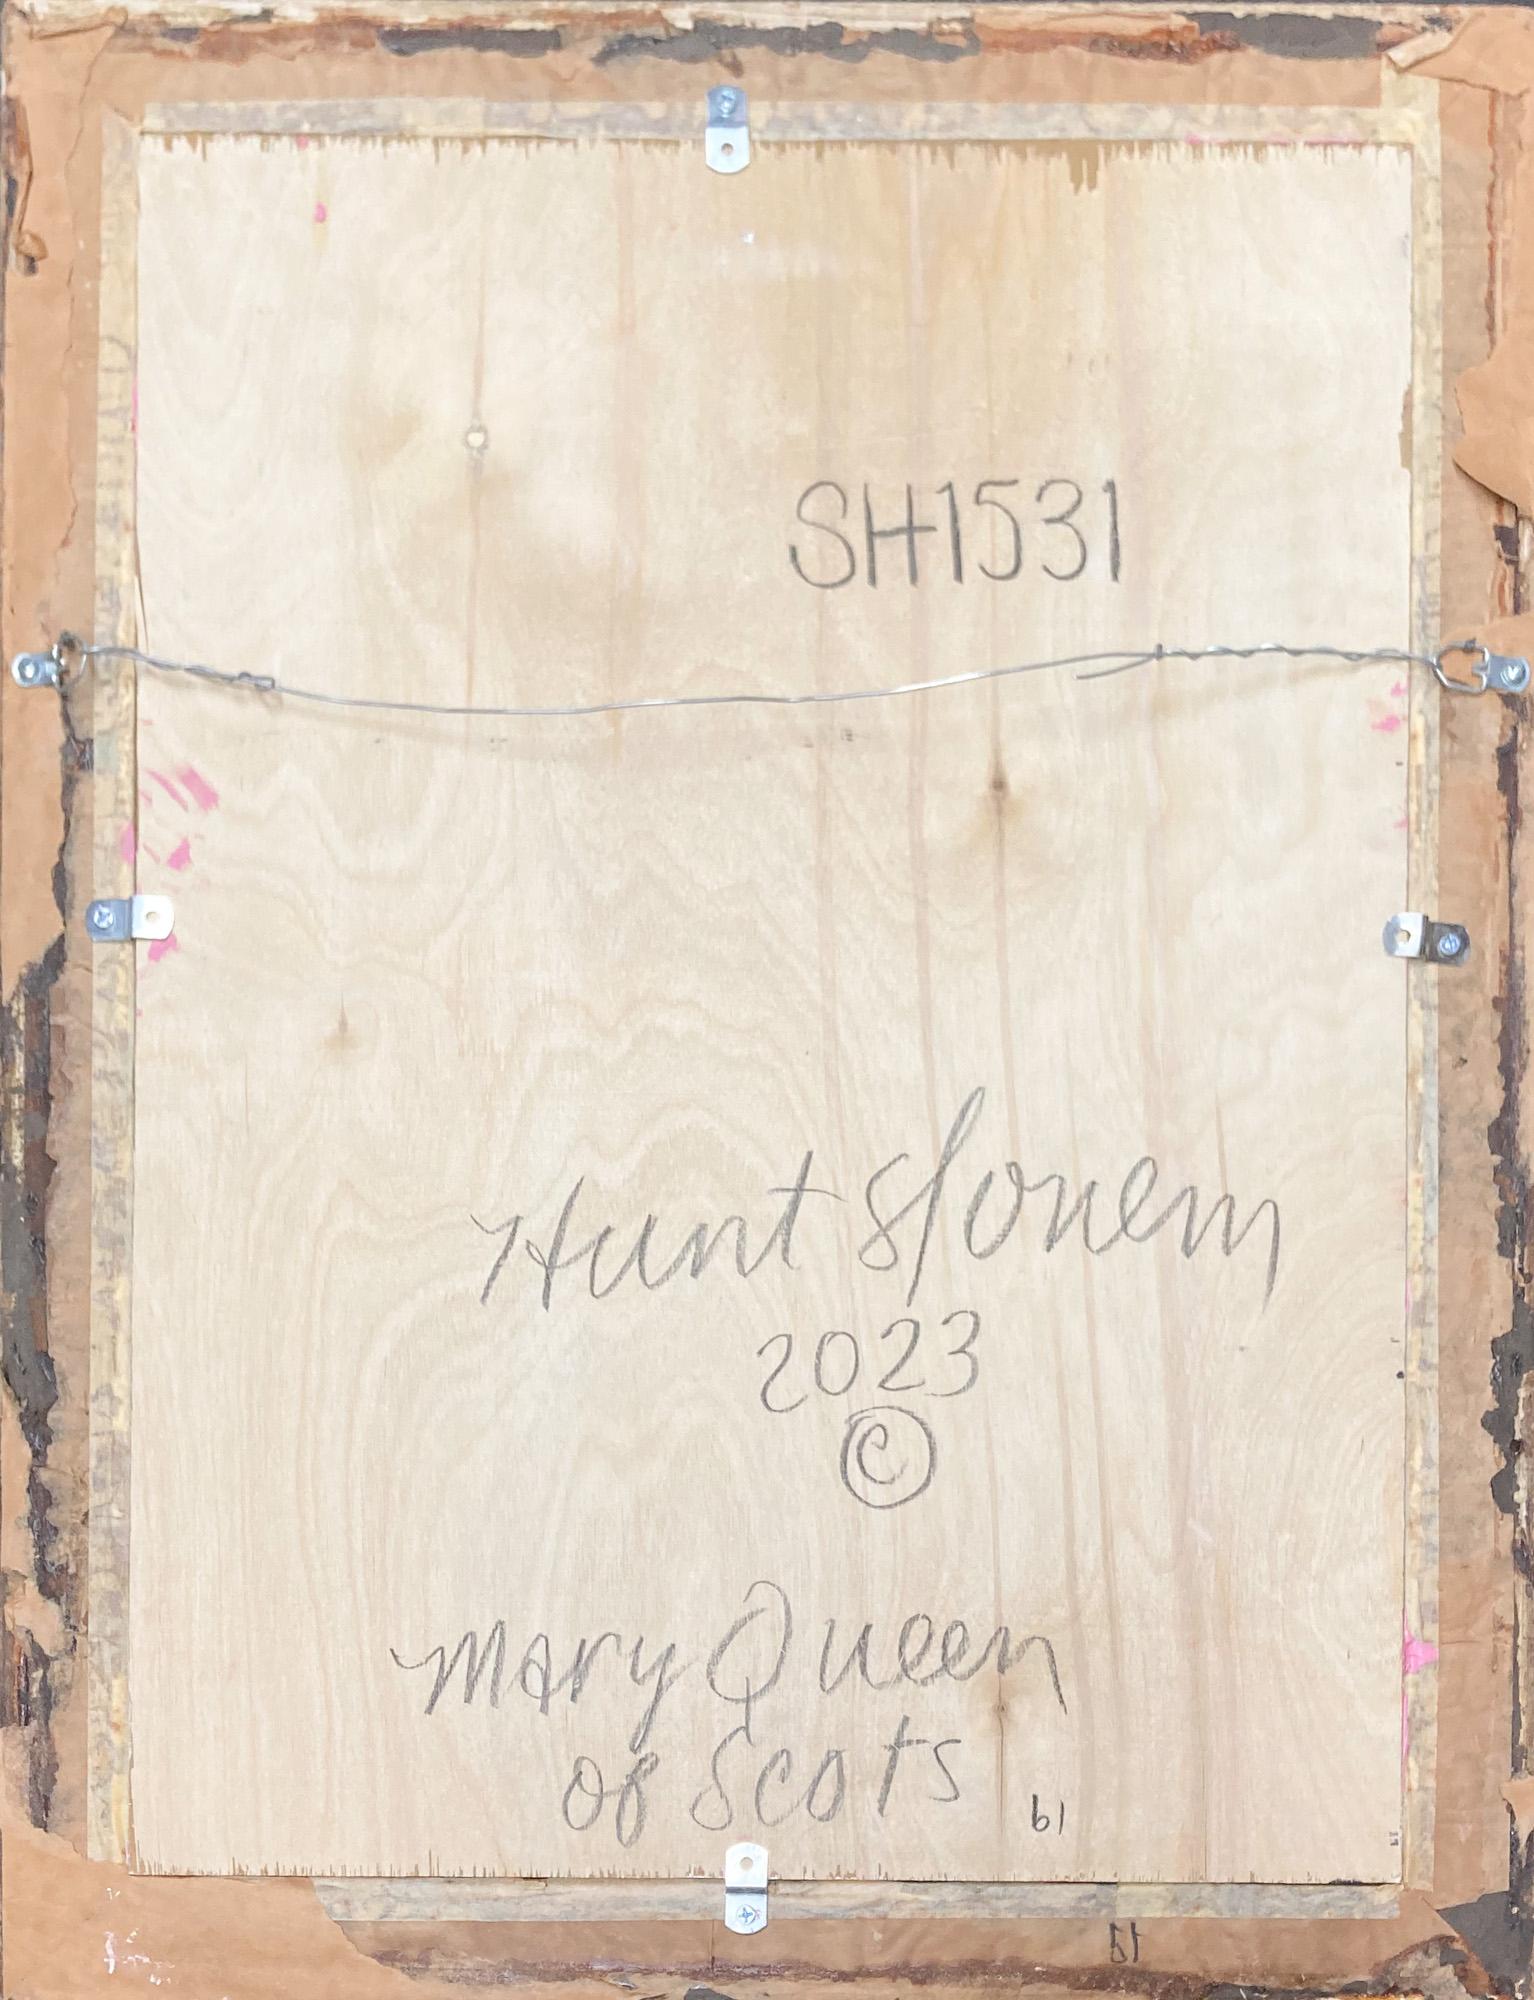 SH1531
Hunt Slonem
2023
©
Mary Queen
of Scots